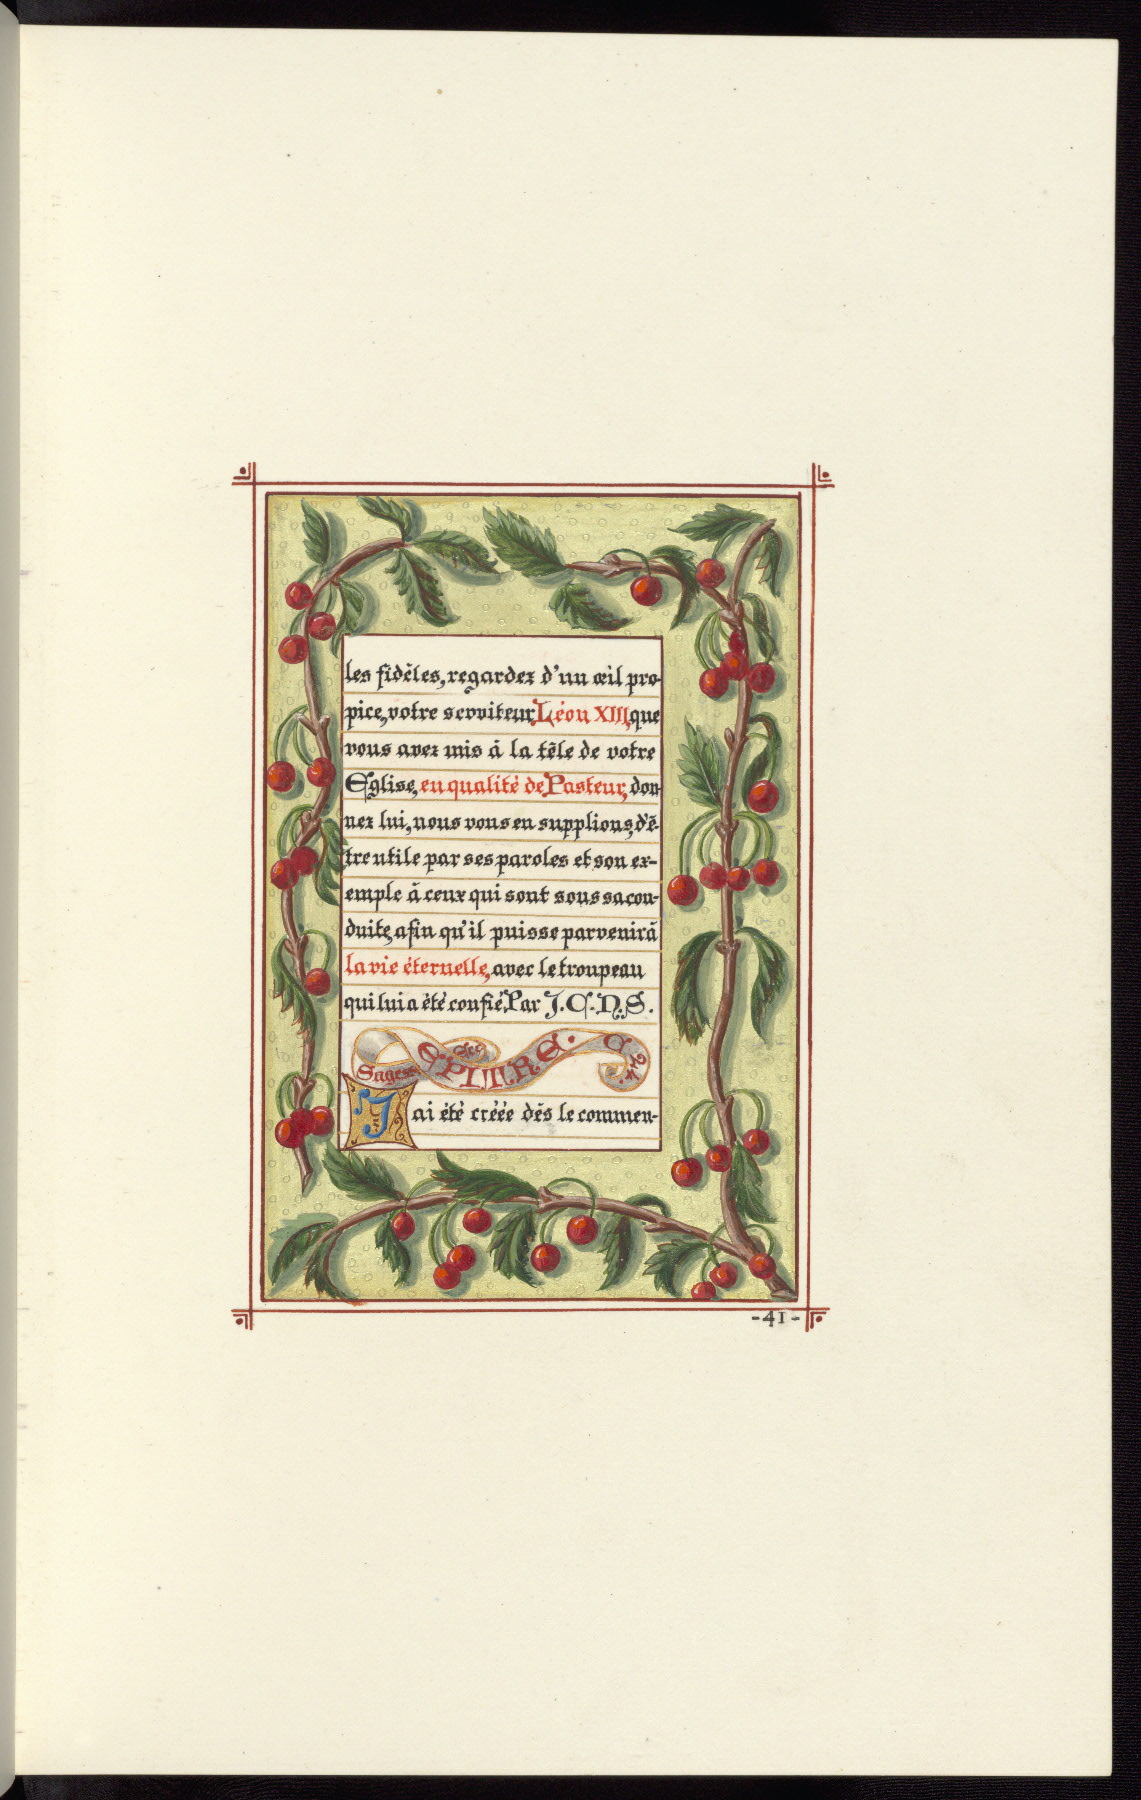 les fidèles, regardez d'un œil pro-
pice, votre serviteur Léon XIII, que
vous avez mis à la tête de votre
Eglise, en qualité de Pasteur, don-
nez lui, nous vous en supplions, d'ê-
tre utile par ses paroles et son ex-
emple à ceux qui sont sous sa con-
duite, afin qu'il puisse parvenir à
la vie éternelle, avec le troupeau
qui lui a été confié. Par J. C. N. S.
EPITRE. C. 24.
Sagesse
J'ai été créée dès le commen-
-41-